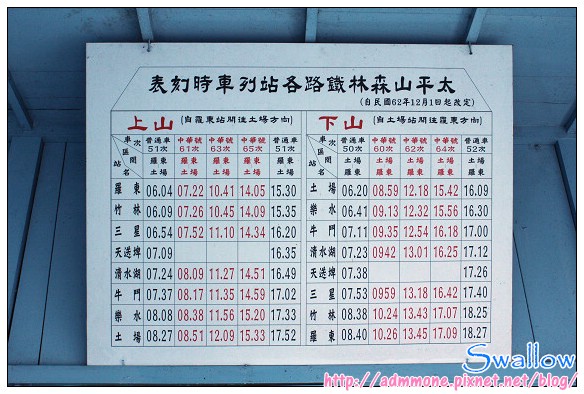 表刻時車列站各路鐵林森山平太
(自民國62年12月1日起改定)
上山 (自羅東站開往土場方向)
車次 普通車 中華號 中華號 中華號 普通車
51次 61次 63次 65次 53次
區間 羅東 羅東 羅東 羅東 羅東
站名 土場 土場 土場 土場 土場
羅東 06.04 07.22 10.41 14.05 15.30
竹林 06.09 07.26 10.45 14.09 15.35
三星 06.54 07.52 11.10 14.34 16.20
天送埤 07.09 16.35
清水湖 07.24 08.09 11.27 14.51 16.49
牛鬥 07.37 08.17 11.35 14.59 17.02
樂水 08.08 08.38 11.56 15.20 17.33
土場 08.27 08.51 12.09 15.33 17.52
下山 (自土場站開往羅東方向)
車次 普通車 中華號 中華號 中華號 普通車
50次 60次 62次 64次 52次
區間 土場 土場 土場 土場 土場
站名 羅東 羅東 羅東 羅東 羅東
土場 06.20 08.59 12.18 15.42 16.09
樂水 06.41 09.13 12.32 15.56 16.30
牛鬥 07.11 09.35 12.54 16.18 17.00
清水湖 07.23 0942 13.01 16.25 17.12
天送埤 07.38 17.26
三星 07.53 0959 13.18 16.42 17.40
竹林 08.38 10.24 13.43 17.07 18.25
羅東 08.40 10.26 13.45 17.09 18.27
Swallow
http://admmone.pixnet.net/blog/